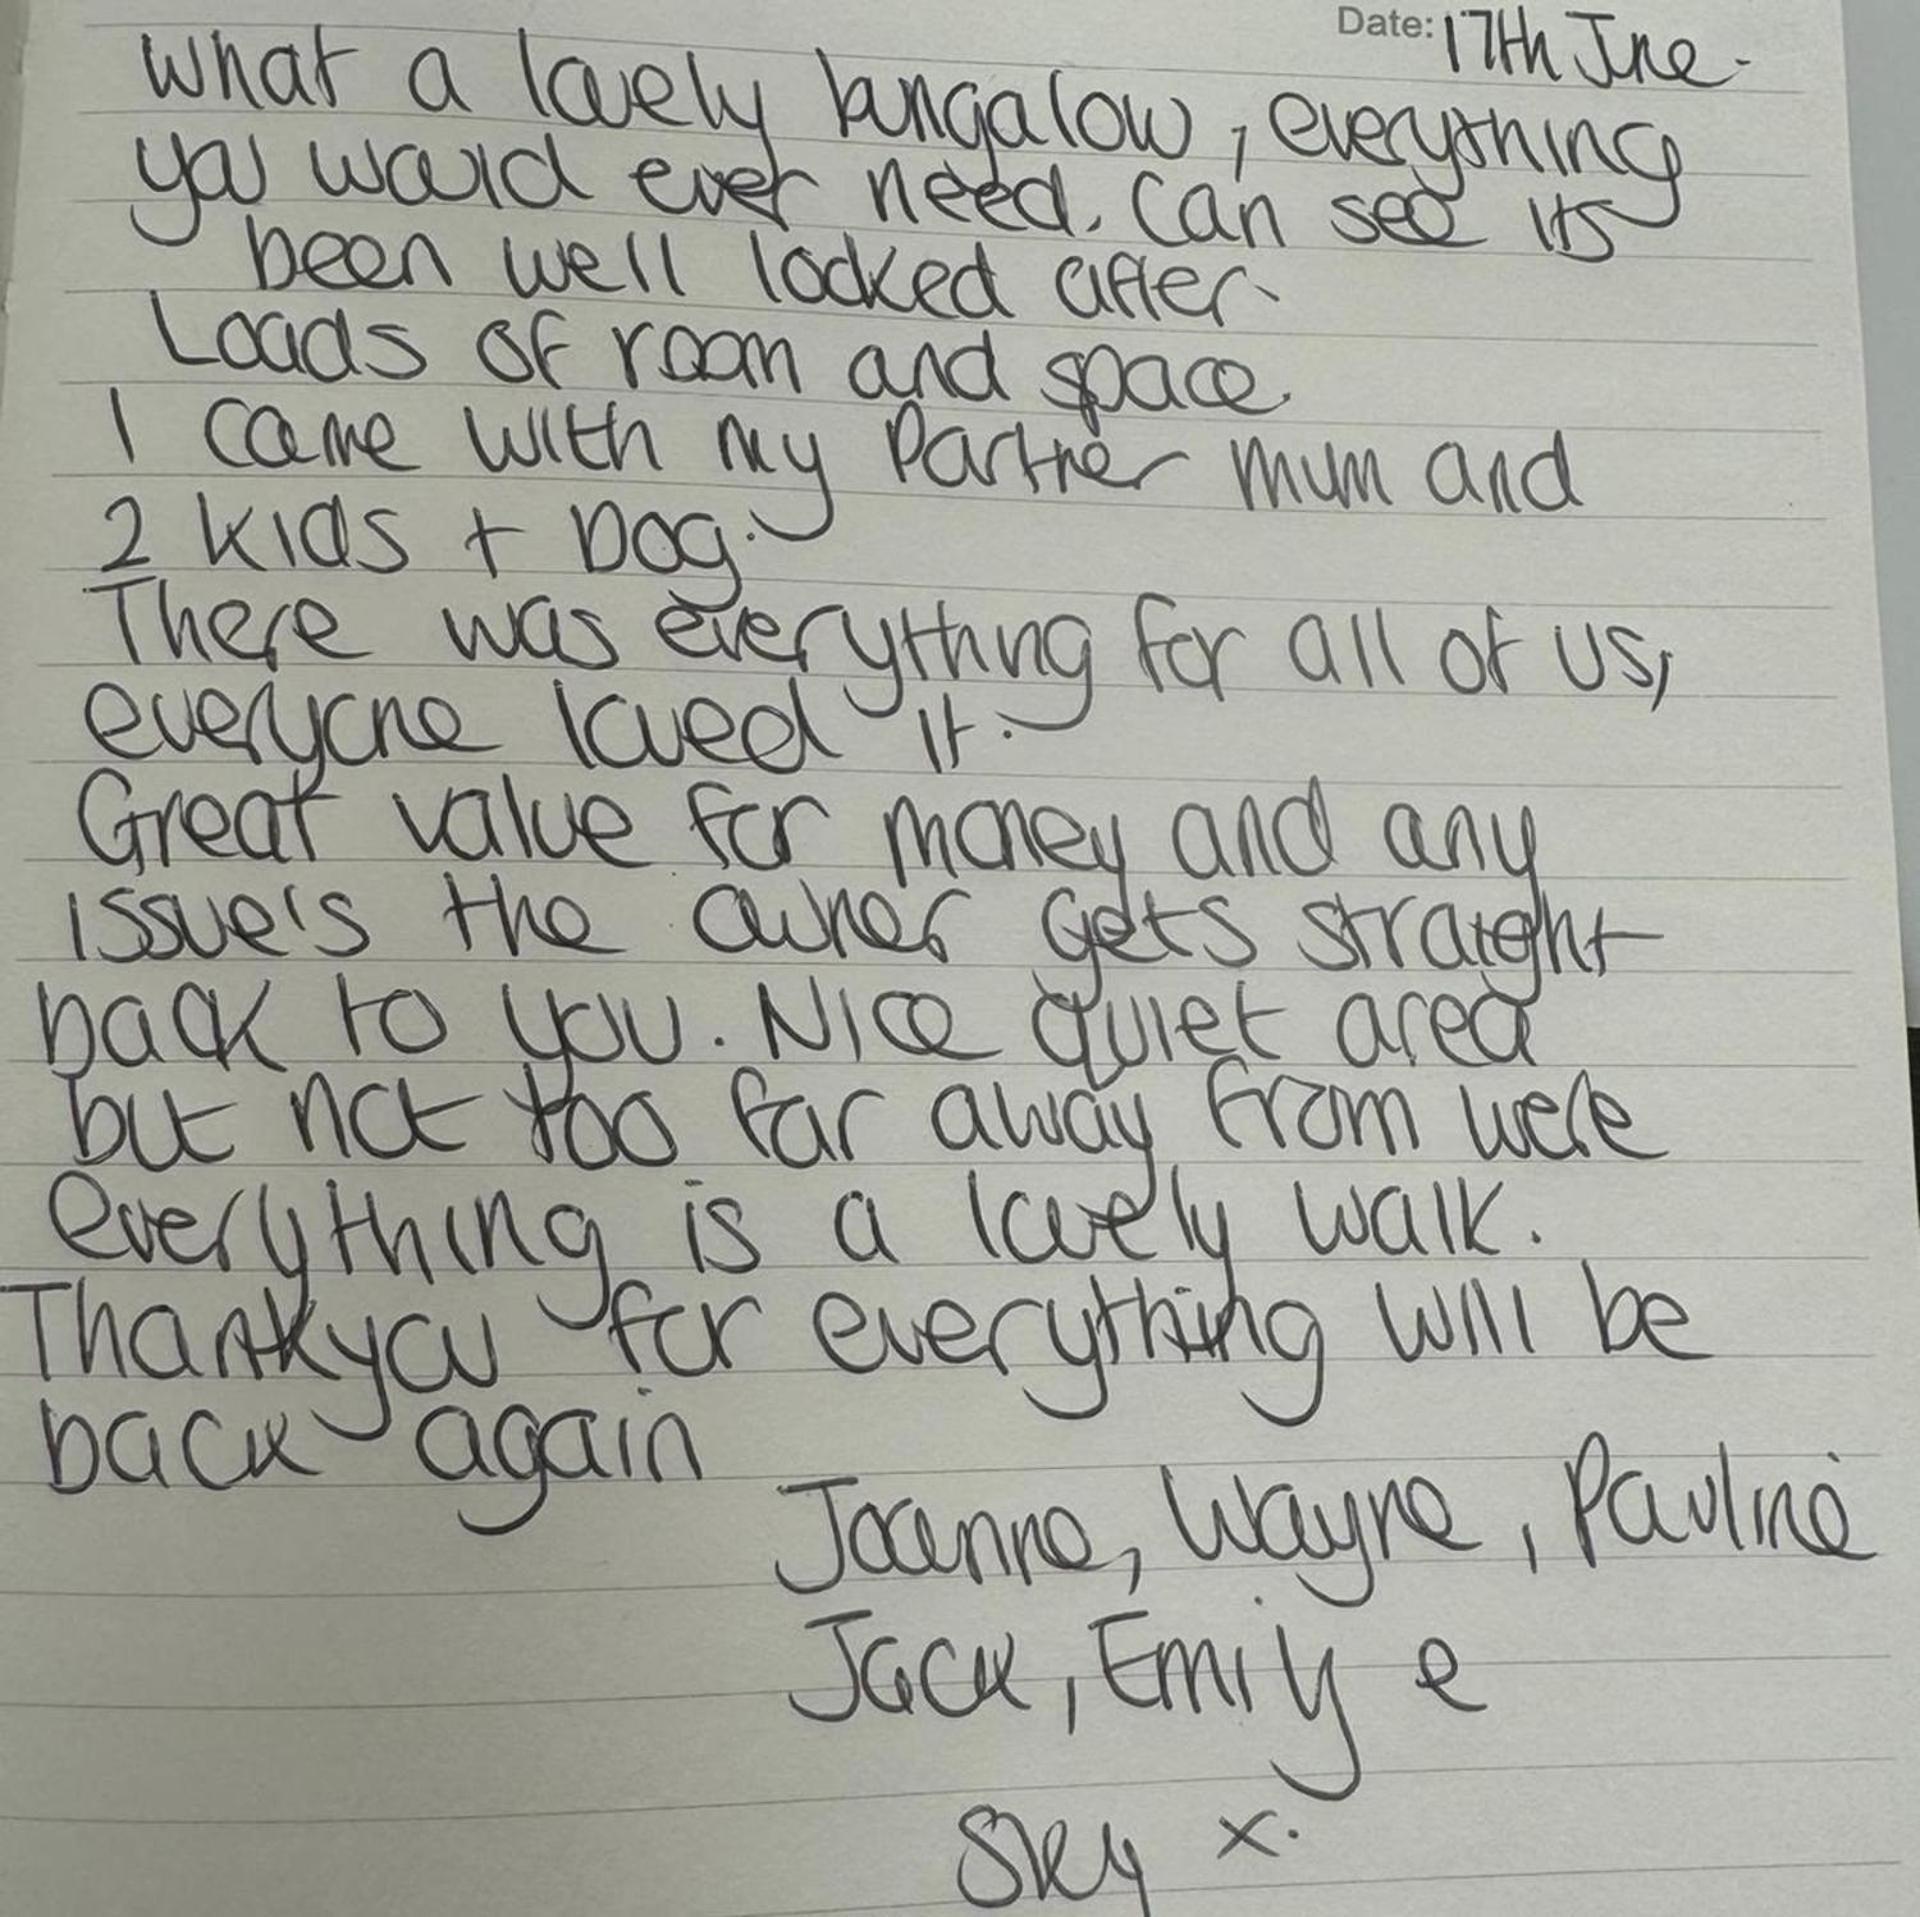 Date: 17th June.
What a lovely bungalow, everything
you would ever need. Can see its
been well looked after.
Loads of room and space.
I came with my Partner mum and
2 kids + Dog.
There was everything for all of us,
everyone loved it.
Great value for money and any
issue's the owner gets straight
back to you. Nice quiet area
but not too far away from were
everything is a lovely walk.
Thankyou for everything will be
back again
Joanne, Wayne, Pauline
Jack, Emily e
Sky x.